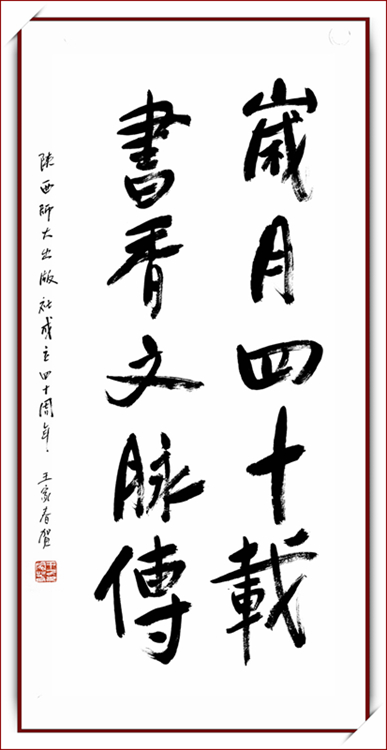 歲月四十載
書香文脉傳
陕西师大出版社成立四十周年、王家春贺